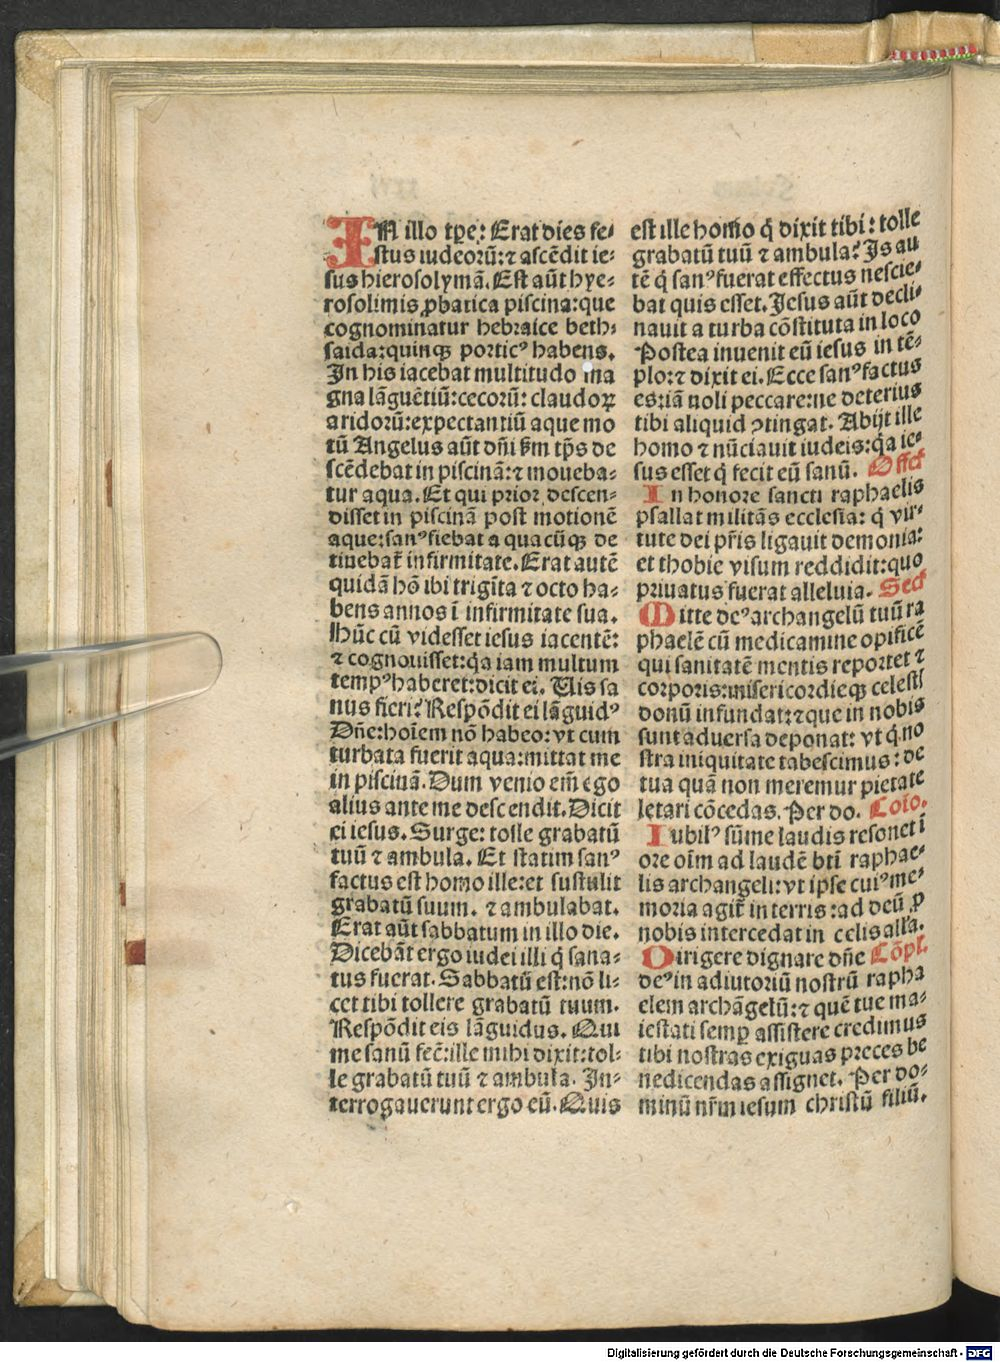 IN illo tꝑe: Erat dies fe⸗
stus iudeorū: ⁊ ascēdit ie⸗
sus hierosolymā. Est aūt hye⸗
rosolimis ꝓbatica piscina: que
cognominatur hebraice beth⸗
saida: quinqꝫ porticꝰ habens.
In his iacebat multitudo ma
gna lāguētiū: cecorū: claudoꝝ
aridorū: expectantiū aque mo
tū Angelus aūt dn̄i ẜm tp̄s de
scēdebat in piscinā: ⁊ moueba⸗
tur aqua. Et qui prior descen⸗
disset in piscinā post motionē
aque: sanꝰ fiebat a quacūqꝫ de
tinebat̄ infirmitate. Erat autē
quidā hō ibi trigīta ⁊ octo ha⸗
bens annos ī infirmitate sua.
Hūc cū vidisset iesus iacentē:
⁊ cognouisset: q̄a iam multum
tempꝰ haberet: dicit ei. Uis sa
nus fieri? Respōdit ei lāguidꝰ
Dn̄e: hoīem nō habeo: vt cum
turbata fuerit aqua: mittat me
in piscinā. Dum venio em̄ ego
alius ante me descendit. Dicit
ei iesus. Surge: tolle grabatū
tuū ⁊ ambula. Et statim sanꝰ
factus est homo ille: et sustulit
grabatū suum. ⁊ ambulabat.
Erat aūt sabbatum in illo die.
Dicebāt ergo iudei illi q̄ sana⸗
tus fuerat. Sabbatū est: nō li⸗
cet tibi tollere grabatū tuum.
Respōdit eis lāguidus. Qui
me sanū fec̄: ille mihi dixit: tol⸗
le grabatū tuū ⁊ ambula. In⸗
terrogauerunt ergo eū. Quis
est ille homo q̄ dixit tibi: tolle
grabatū tuū ⁊ ambula? Is au
tē q̄ sanꝰ fuerat effectus nescie⸗
bat quis esset. Iesus aūt decli⸗
nauit a turba cōstituta in loco
Postea inuenit eū iesus in tē⸗
plo: ⁊ dixit ei. Ecce sanꝰ factus
es: iā noli peccare: ne deterius
tibi aliquid ꝯtingat. Abijt ille
homo ⁊ nūciauit iudeis: q̄a ie⸗
sus esset q̄ fecit eū sanū. Offert̄
In honore sancti raphaelis
psallat militās ecclesia: q̄ vir⸗
tute dei pr̄is ligauit demonia:
et thobie visum reddidit: quo
priuatus fuerat alleluia. Secr̄
Mitte deꝰ archangelū tuū ra
phaelē cū medicamine opificē
qui sanitatē mentis reportet ⁊
corporis: misericordieqꝫ celestꝭ
donū infundat: ⁊ que in nobis
sunt aduersa deponat: vt q̄ no
stra iniquitate tabescimus: de
tua quā non meremur pietate
letari cōcedas. Per do. Cōio.
Iubilꝰ sūme laudis resonet ī
ore oīm ad laudē bt̄i raphae⸗
lis archangeli: vt ipse cuiꝰ me⸗
moria agit̄ in terris: ad deū ꝓ
nobis intercedat in celis all'a.
Dirigere dignare dn̄e Cōpl.
deꝰ in adiutoriū nostrū rapha
elem archāgelū: ⁊ quē tue ma⸗
iestati semꝑ assistere credimus
tibi nostras exiguas preces be
nedicendas assignet. Per do⸗
minū nr̄m iesum christū filiū.
Digitalisierung gefördert durch die Deutsche Forschungsgemeinschaft - DFG